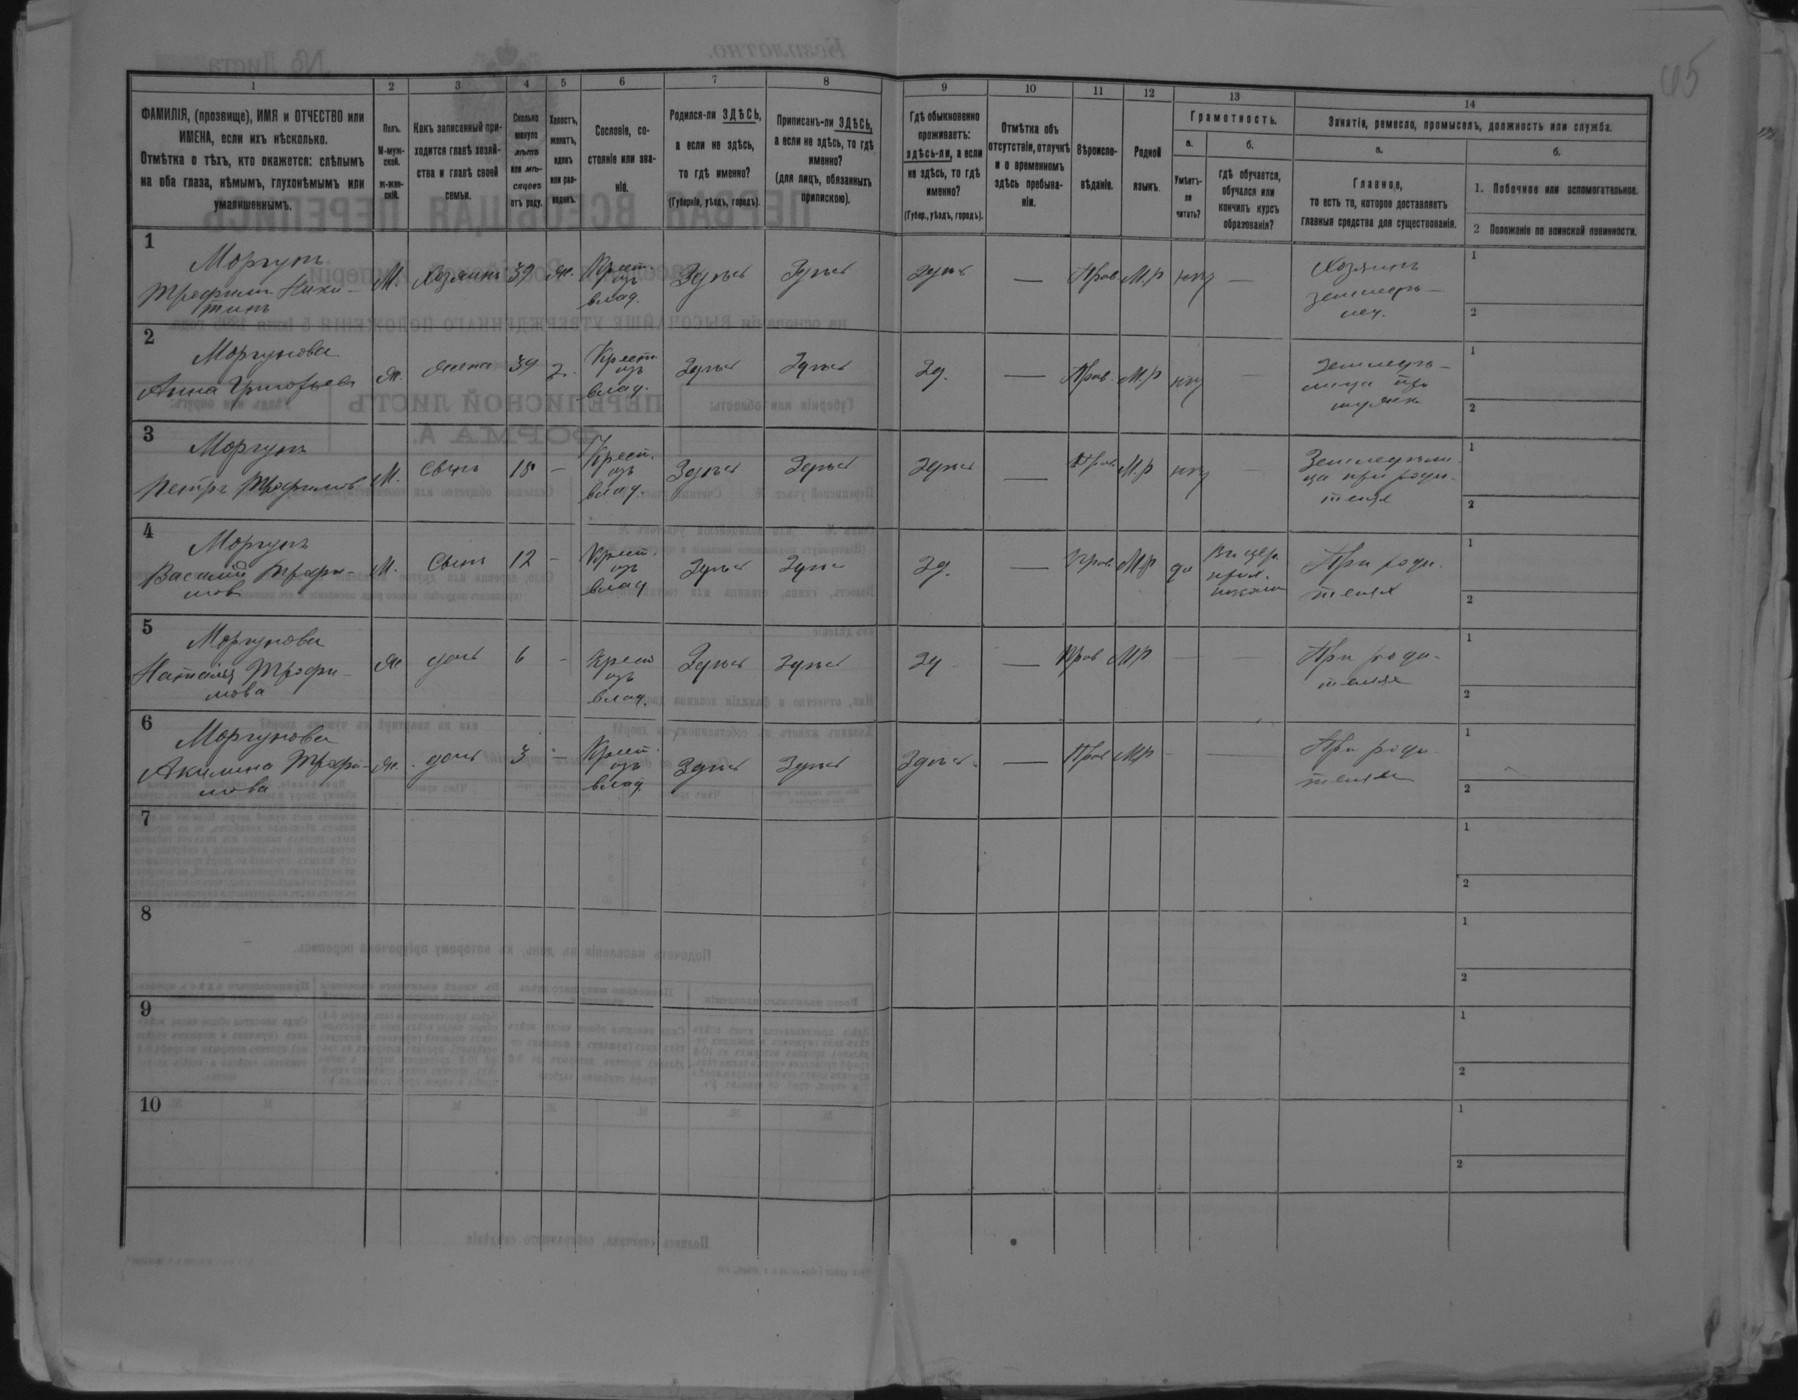 65
1 2 3 4 5 6 7 8 9 10 11 12 13 14
ФАМИЛІЯ, (прозвище), ИМЯ и ОТЧЕСТВО или
ИМЕНА, если ихъ нѣсколько.
Отмѣтка о тѣхъ, кто окажется: слѣпымъ
на оба глаза, нѣмымъ, глухонѣмымъ или
умалишеннымъ.
Полъ.
М-муж-
ской.
ж-жен-
скій.
Какъ записанный при-
ходится главѣ хозяй-
ства и главѣ своей
семьи.
Сколько
минуло
лѣтъ
или мѣ-
сяцевъ
отъ роду.
Холостъ,
женатъ,
вдовъ
или раз-
веденъ.
Сословіе, со-
стояніе или зва-
ніе.
Родился-ли ЗДѢСЬ,
а если не здѣсь,
то гдѣ именно?
(Губернія, уѣздъ, городъ).
Приписанъ-ли ЗДѢСЬ,
а если не здѣсь, то гдѣ
именно?
(для лицъ, обязанныхъ
припискою).
Гдѣ обыкновенно
проживаетъ:
здѣсь-ли, а если
не здѣсь, то гдѣ
именно?
(Губер., уѣздъ, городъ).
Отмѣтка объ
отсутствіи, отлучкѣ
и о временномъ
здѣсь пребыва-
ніи.
Вѣроиспо-
вѣданіе.
Родной
языкъ.
Грамотность.
а.
Умѣетъ-
ли
читать?
б.
гдѣ обучается,
обучался или
кончилъ курсъ
образованія?
Занятіе, ремесло, промыселъ, должность или служба.
а.
Главное,
то есть то, которое доставляетъ
главныя средства для существованія.
б.
1. Побочное или вспомогательное.
2 Положеніе по воинской повинности.
1
Моргунъ
Трофимъ Ники-
тинъ
М. Хозяинъ 39 ж. Крест. изъ влад. Здѣсь Здѣсь здѣсь — Прав М.р нѣт — Хозяинъ
земледѣ-
лец.
1
2
2
Моргунова
Анна Григорьева
ж. жена 39 з. Крест. изъ влад. Здѣсь Здѣсь Зд. — Прав. М.р нѣт —
1
2
3
Моргунъ
Петръ Трофимовъ
М. Сынъ 18 — Крест. изъ влад. Здѣсь Здѣсь Здѣсь — Прав М.р нѣт —
при роди-
теляхъ
1
2
4
Моргунъ
Василій Трофи-
мов
М. Сынъ 12 — Крест. изъ влад Здѣсь Здѣсь Зд. — Прав М.р да
При роди-
теляхъ
1
2
5
Моргунова
Наталія Трофи-
мова
ж дочь 6 — Крест изъ влад. Здѣсь Здѣсь Зд — Прав М.р — — При роди-
теляхъ
1
2
6
Моргунова
Акилина Трофи-
мова
ж. дочь 3 — Крест. изъ влад. Здѣсь Здѣсь Здѣсь. — Прав М.р — — При роди-
теляхъ
1
2
7
1
2
8
1
2
9
1
2
10
1
2